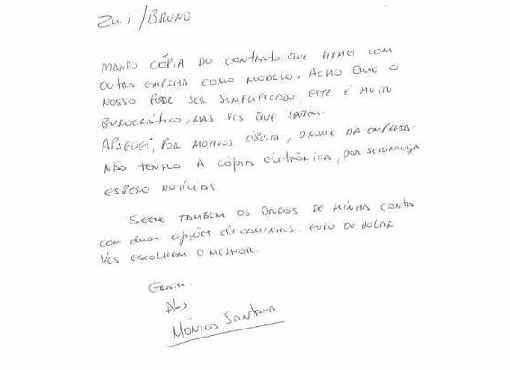 Zui/BRUNO
MANDO CÓPIA DO CONTRATO QUE FIRMEI COM
OUTRA EMPRESA COMO MODELO. ACHO QUE O
NOSSO PODE SER SIMPLIFICADO. ESTE É MUITO
BUROCRÁTICO, MAS VCS QUE SABEM.
APAGUEI, POR MOTIVOS ÓBVIOS, O NOME DA EMPRESA.
NÃO TENHO A CÓPIA ELETRÔNICA, POR SEGURANÇA
ESPERO NOTÍCIAS
SEGUE TAMBEM OS DADOS DE MINHA CONTA
COM DUAS OPÇÕES DE CAMINHOS. EURO OU DOLAR
VCS ESCOLHEM O MELHOR.
Abs
MÔNICA SANTANA